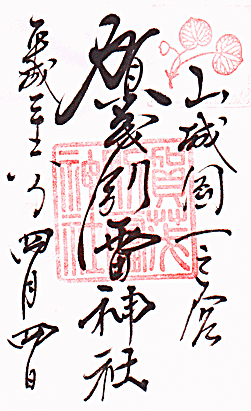 山城國一之宮
賀茂別雷神社
平成二十八年四月四日
賀茂別雷神社